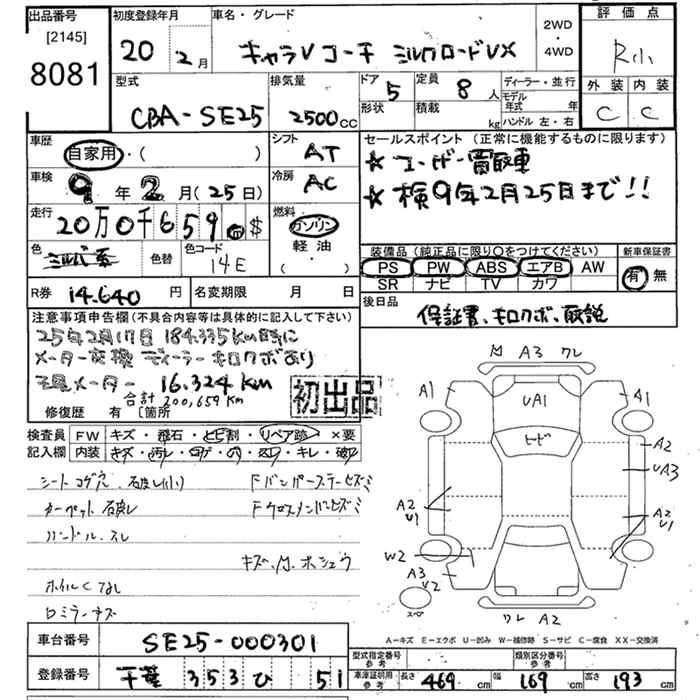 出品番号 初度登録年月 車名・グレード 2WD・4WD 評価点
[2145]
8081 20年 2月 キャラV コーチ ミルクロードVX R小
外装 内装
C C
型式 排気量 ドア 定員 ディーラー・並行
CBA-SE25 2500CC 5 8人 モデル年式 年
形状 積載 kg ハンドル 左・右
車歴 自家用・( ) シフト AT セールスポイント (正常に機能するものに限ります)
車検 9年2月(25日) 冷房 AC ★ユーザー買取車
★検9年2月25日まで!!
走行 20万0千659 km $ 燃料 ガソリン
軽油
( )
色 シルバー系 色替 色コード 14E
装備品 (純正品に限り○をつけてください) 新車保証書
PS PW ABS エアB AW 有・無
SR ナビ TV カワ
R券 14.640円 名変期限 月 日 後日品
保証書、キロクボ、取説
注意事項申告欄(不具合内容等は具体的に記入して下さい)
25年2月17日 184.335km時に
メーター交換 ディーラーキロクボあり
現メーター 16.324km
合計 200,659km
修復歴 有 〔箇所
初出品
検査員記入欄 FW キズ・飛石・とび割・リペア跡・×要
内装 キズ・汚レ・コゲ・穴・スレ・キレ・破レ
シートコゲ穴、破レ(小)
カーペット破レ
ハンドルスレ
ホイルC なし
キズ、M、ホシュウ
M A3 ワレ
A1 UA1 A1
ヒビ
A2
UA3
A2 U1 A2 U1
W2
A3 U2
スペア
ワレ A2
A-キズ E-エクボ U-凹み W-補修跡 S-サビ C-腐食 XX-交換済
車台番号 SE25-000301
型式指定番号 参考 類別区分番号 参考
登録番号 千葉 353 ひ 51
車庫証明用 参考 長さ 469cm 幅 169cm 高さ 193cm